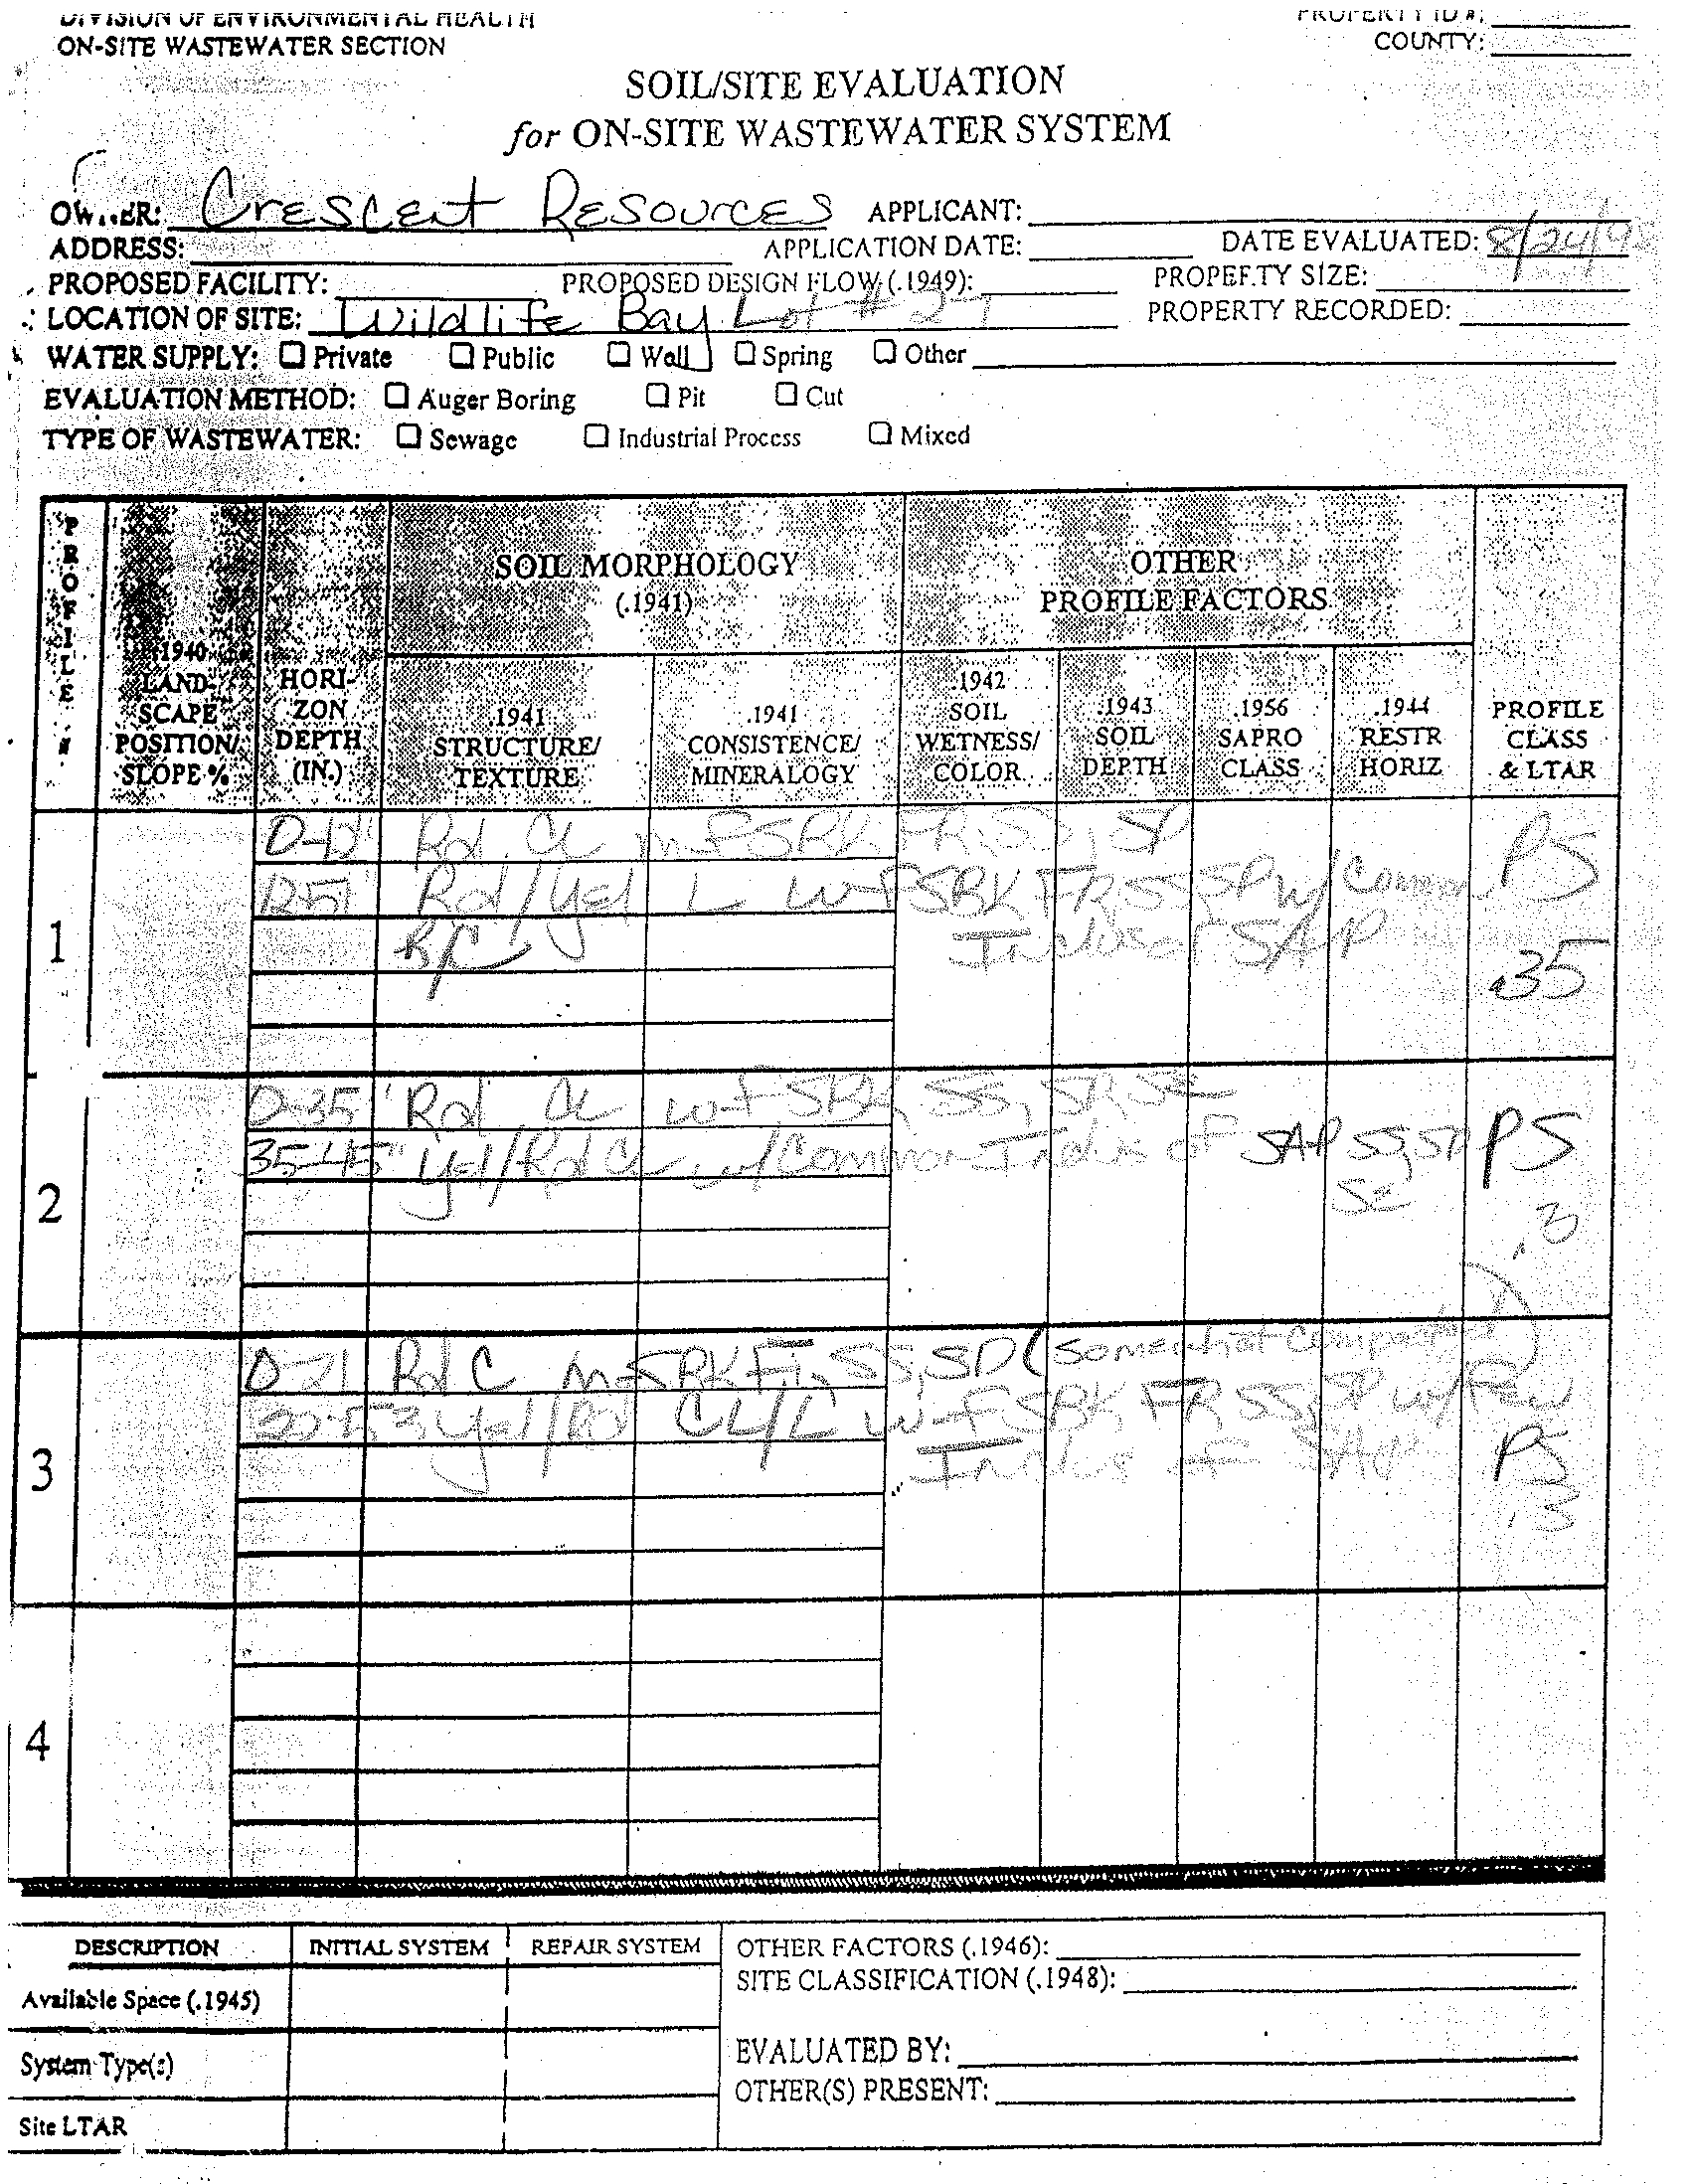 DIVISION OF ENVIRONMENTAL HEALTH
ON-SITE WASTEWATER SECTION
PROPERTY ID #:
COUNTY:
SOIL/SITE EVALUATION
for ON-SITE WASTEWATER SYSTEM
OWNER: Crescent Resources APPLICANT:
ADDRESS: APPLICATION DATE: DATE EVALUATED: 8/24/98
PROPOSED FACILITY: PROPOSED DESIGN FLOW (.1949): PROPERTY SIZE:
LOCATION OF SITE: Wildlife Bay Lot # 27 PROPERTY RECORDED:
WATER SUPPLY: ☐ Private ☐ Public ☐ Well ☐ Spring ☐ Other
EVALUATION METHOD: ☐ Auger Boring ☐ Pit ☐ Cut
TYPE OF WASTEWATER: ☐ Sewage ☐ Industrial Process ☐ Mixed
PROFILE #
.1940 LANDSCAPE POSITION/ SLOPE %
HORI-ZON DEPTH (IN.)
SOIL MORPHOLOGY (.1941)
OTHER PROFILE FACTORS
.1941 STRUCTURE/ TEXTURE
.1941 CONSISTENCE/ MINERALOGY
.1942 SOIL WETNESS/ COLOR
.1943 SOIL DEPTH
.1956 SAPRO CLASS
.1944 RESTR HORIZ
PROFILE CLASS & LTAR
1
0-12" Rd CL m-f SBK FR, SS, SP PS
12-51" Rd/Yel L w-f SBK FR, SS SP w/common
B/C Inclus of SAP .35
2
0-35" Rd CL w-f SBK, SS, SP, SE
35-45" Yel/Rd CL w/Common Inclus of SAP SS, SP PS
SE
.3
3
0-21 Rd C m-f SBK Fi, SS, SP (somewhat compacted)
Yel/Rd CL/L w-f SBK, FR SS, SP w/Few
Inclus of SAP PS
.3
4
DESCRIPTION INITIAL SYSTEM REPAIR SYSTEM
Available Space (.1945)
System Type(s)
Site LTAR
OTHER FACTORS (.1946):
SITE CLASSIFICATION (.1948):
EVALUATED BY:
OTHER(S) PRESENT: